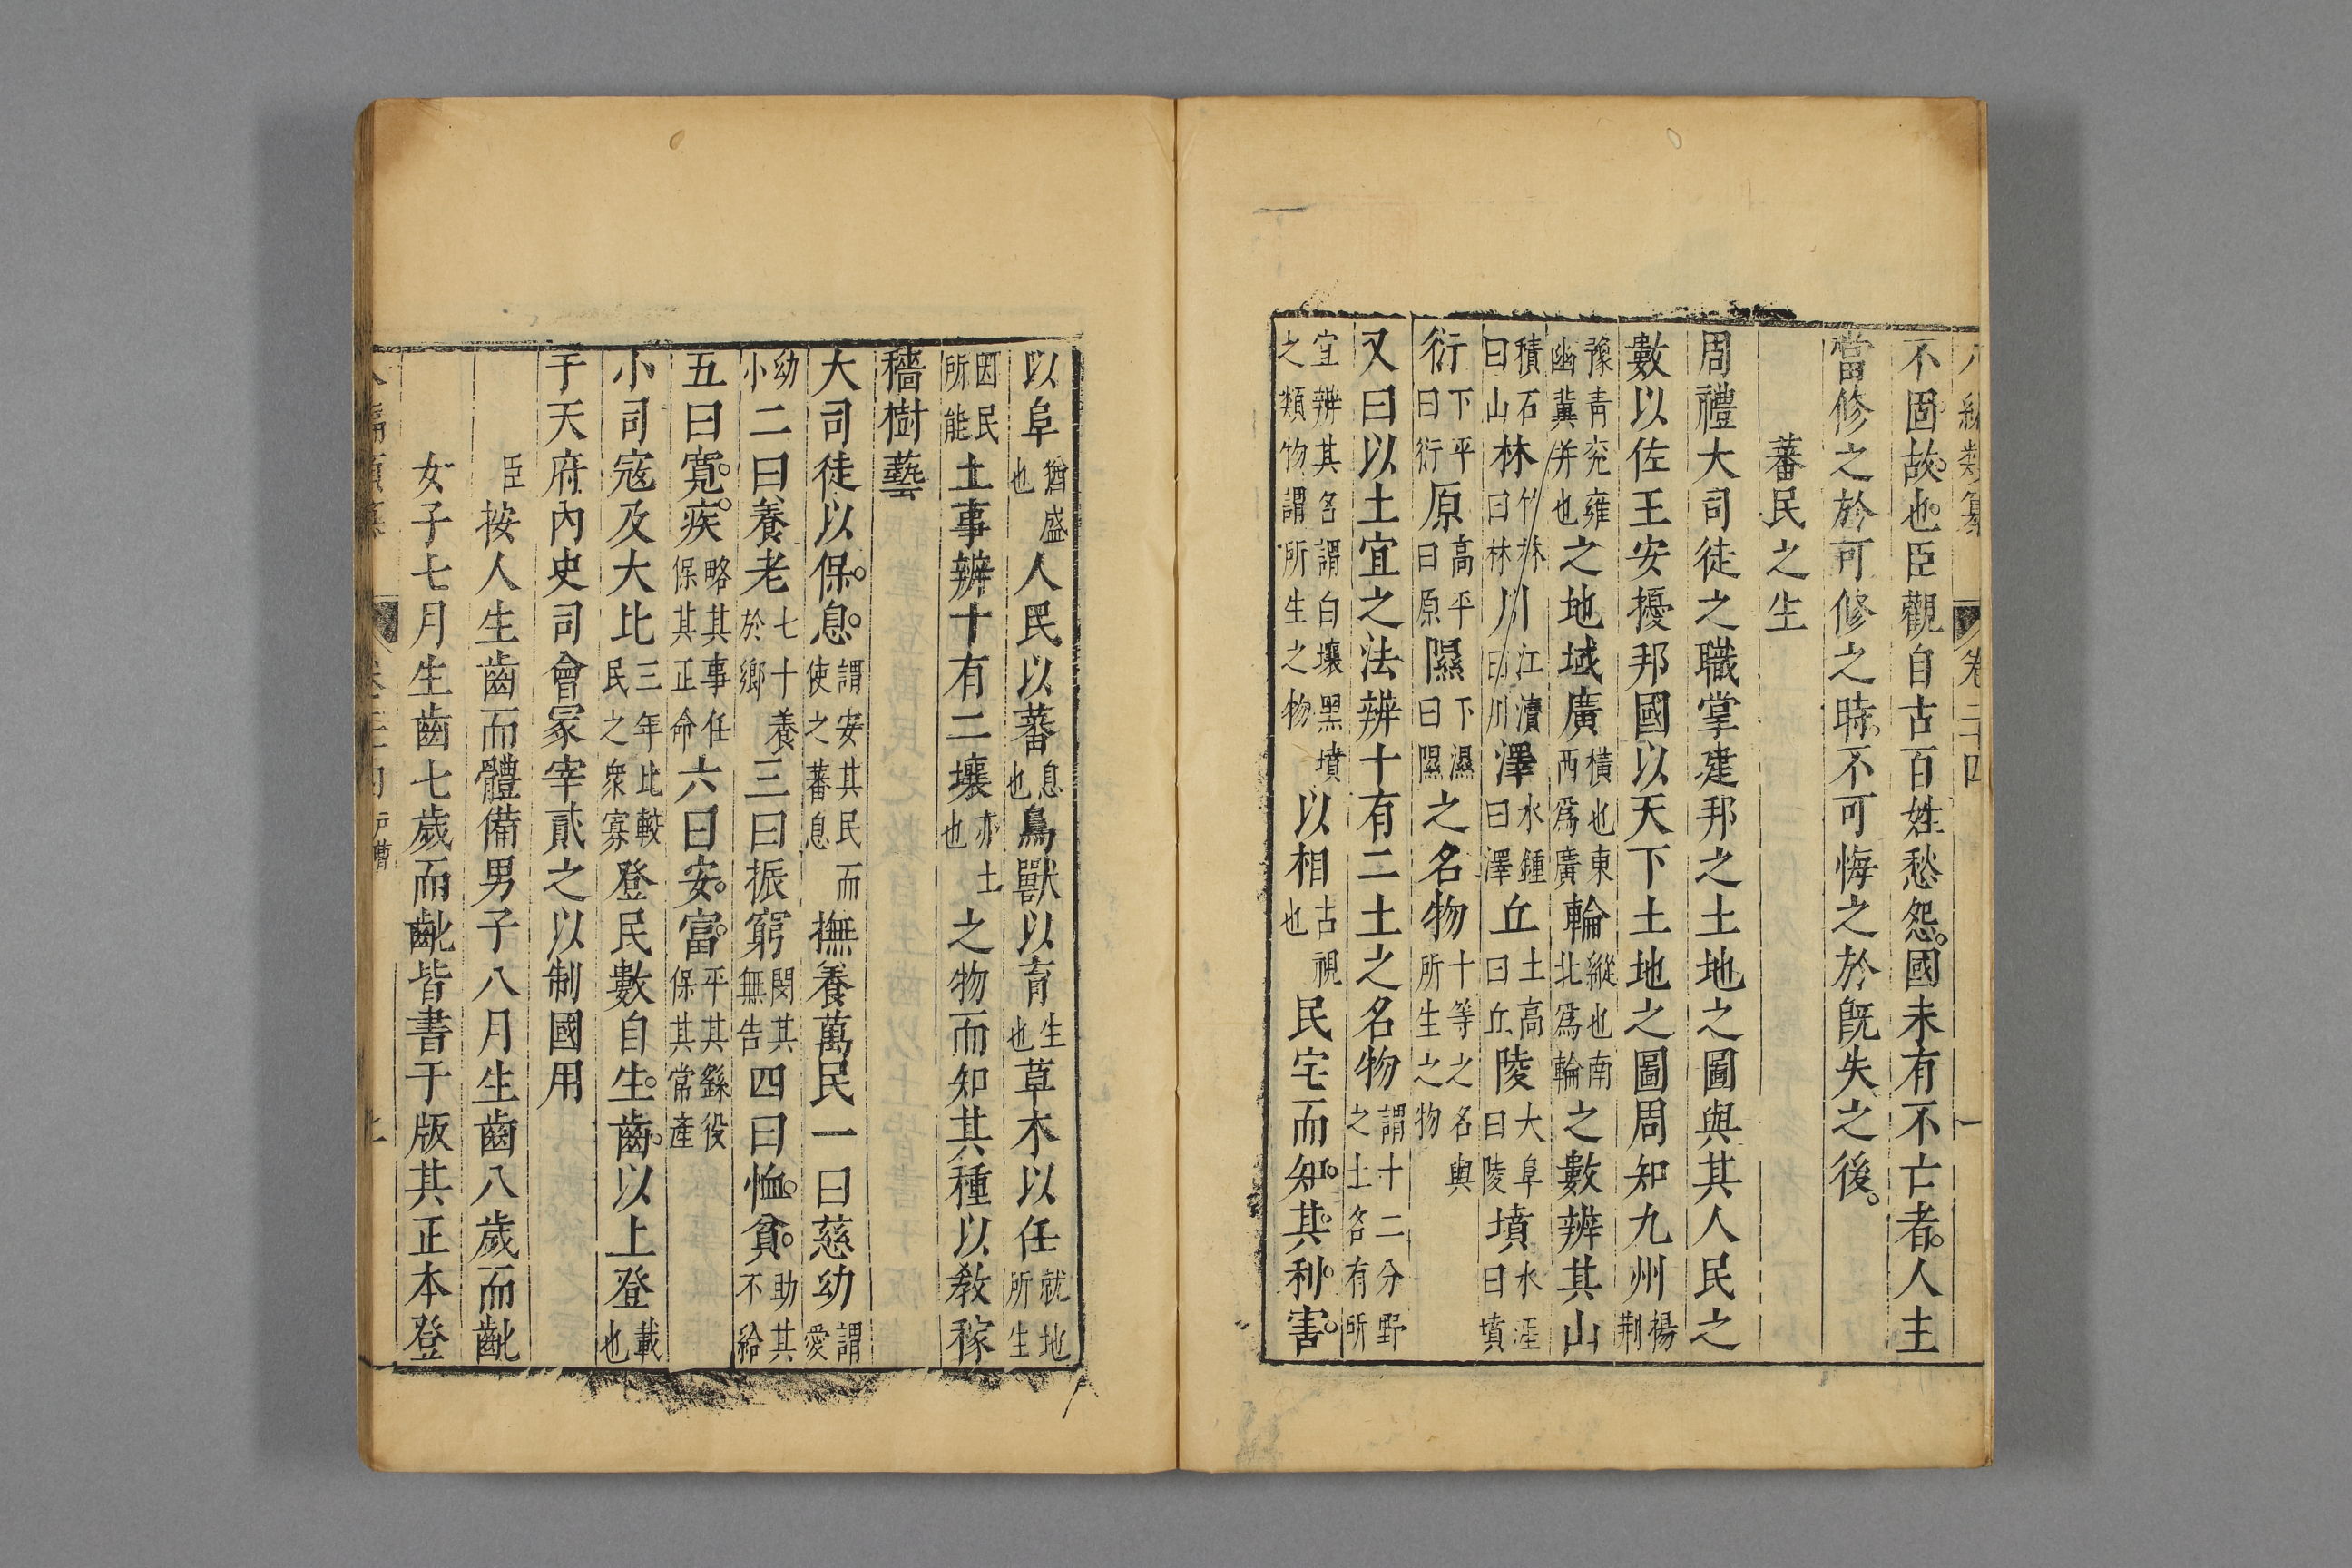 八編類纂 卷二十四
不固故也臣觀自古百姓愁怨國未有不亡者人主
當修之於可修之時不可悔之於旣失之後
蕃民之生
周禮大司徒之職掌建邦之土地之圖與其人民之
數以佐王安擾邦國以天下土地之圖周知九州楊荆
豫青兖雍幽冀并也之地域廣橫也東西爲廣輪縱也南北爲輪之數辨其山
積石曰山林竹林曰林川江瀆曰川澤水鍾曰澤丘土高曰丘陵大阜曰陵墳水涯曰墳
衍下平曰衍原高平曰原隰下濕曰隰之名物十等之名與所生之物
又曰以土宜之法辨十有二土之名物謂十二分野之土各有所
宜辨其名謂白壤黑墳之類物謂所生之物以相古視也民宅而知其利害
以阜猶盛也人民以蕃息也鳥獸以育生也草木以任就地所生
因民所能土事辨十有二壤亦土也之物而知其種以敎稼
穡樹藝
大司徒以保息謂安其民而使之蕃息撫養萬民一曰慈幼謂愛
幼小二曰養老七十養於鄉三曰振窮閔其無告四曰恤貧助其不給
五曰寬疾略其事任保其正命六曰安富平其繇役保其常產
小司寇及大比三年比較民之衆寡登民數自生齒以上登載也
于天府內史司會冢宰貳之以制國用
臣按人生齒而體備男子八月生齒八歲而齔
女子七月生齒七歲而齔皆書于版其正本登